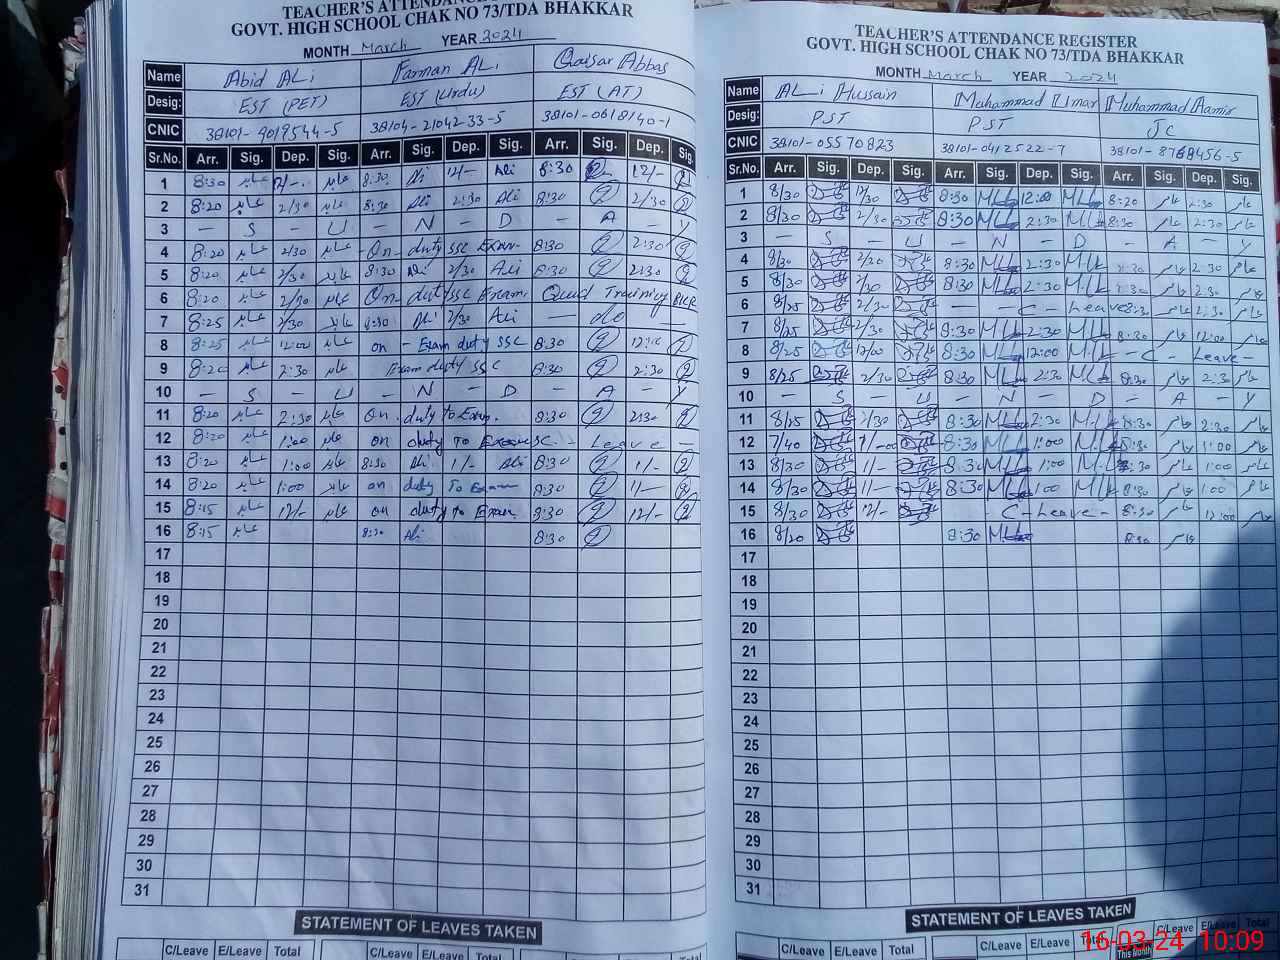 TEACHER'S ATTENDANCE
GOVT. HIGH SCHOOL CHAK NO 73/TDA BHAKKAR
MONTH March YEAR 2024
Name Abid ALi Farman ALi Qaisar Abbas
Desig: EST (PET) EST (Urdu) EST (AT)
CNIC 38101-9019544-5 38104-2104233-5 38101-0618140-1
Sr.No. Arr. Sig. Dep. Sig. Arr. Sig. Dep. Sig. Arr. Sig. Dep. Sig.
1 8:30 عابد 12/-. عابد 8:30 Ali 12/- Ali 8:30 12/-
2 8:20 عابد 2/30 عابد 8:30 Ali 2:30 Ali 8:30 2/30
3 - S - U - N - D - A - Y
4 8:20 عابد 2/30 عابد - On - duty SSC Exam- 8:30 2:30
5 8:20 عابد 2/30 عابد 8:30 Ali 2/30 Ali 8:30 2:30
6 8:20 عابد 2/30 عابد On- duty SSC Exam Training
7 8:25 عابد 2/30 عابد 8:30 Ali 2/30 Ali - do -
8 8:25 عابد 12:00 عابد on - Exam duty SSC 8:30
9 8:20 عابد 2:30 عابد Exam duty SSC 8:30 2:30
10 - S - U - N - D A - Y
11 8:20 عابد 2:30 عابد On . duty to Exam. 8:30 2:30
12 8:20 عابد 1:00 عابد on duty To C - Leave -
13 8:20 عابد 1:00 عابد 8:30 Ali 1/- Ali 8:30 1/-
14 8:20 عابد 1:00 عابد on duty To Exam 8:30 1/-
15 8:15 عابد 12/- عابد on duty to Exam 8:30 12/-
16 8:15 عابد 8:30 Ali 8:30
17
18
19
20
21
22
23
24
25
26
27
28
29
30
31
STATEMENT OF LEAVES TAKEN
C/Leave E/Leave Total C/Leave E/Leave Total C/Leave E/Leave
TEACHER'S ATTENDANCE REGISTER
GOVT. HIGH SCHOOL CHAK NO 73/TDA BHAKKAR
MONTH March YEAR 2024
Name ALi Hussain Muhammad Umar Muhammad Aamir
Desig: PST PST JC
CNIC 38101-05570823 38101-0412522-7 38101-8768456-5
Sr.No. Arr. Sig. Dep. Sig. Arr. Sig. Dep. Sig. Arr. Sig. Dep. Sig.
1 8/30 12/30 8:30 12:00 8:20 عامر 2:30 عامر
2 8/30 2/30 8:30 2:30 8:30 عامر 2:30 عامر
3 - S - U - N - D - A - Y
4 8/30 2/20 8:30 2:30 8:30 عامر 2:30 عامر
5 8/30 2/30 8:30 2:30 8:30 عامر 2:30 عامر
6 8/25 2/30 - - C - Leave عامر 2:30 عامر
7 8/25 2/30 8:30 2:30 8:30 عامر 12:00 عامر
8 8/25 12/00 8:30 12:00 - C - Leave -
9 8/25 2/30 8:30 2:30 8:30 عامر 2:30 عامر
10 - S - U - N - D - A - Y
11 8/25 2/30 8:30 2:30 8:30 عامر 2:30 عامر
12 7/40 8:30 1:00 8:30 عامر 1:00 عامر
13 8/30 1/- 8:30 1:00 8:30 عامر 1:00 عامر
14 8/30 1/- 8:30 1:00 8:30 عامر 1:00 عامر
15 8/30 12/- - C - Leave - 8:30 عامر 12:00 عامر
16 8/20 8:30 8:30 عامر
17
18
19
20
21
22
23
24
25
26
27
28
29
30
31
STATEMENT OF LEAVES TAKEN
C/Leave E/Leave Total C/Leave E/Leave Total C/Leave E/Leave Total
This Month
16-03-24 10:09